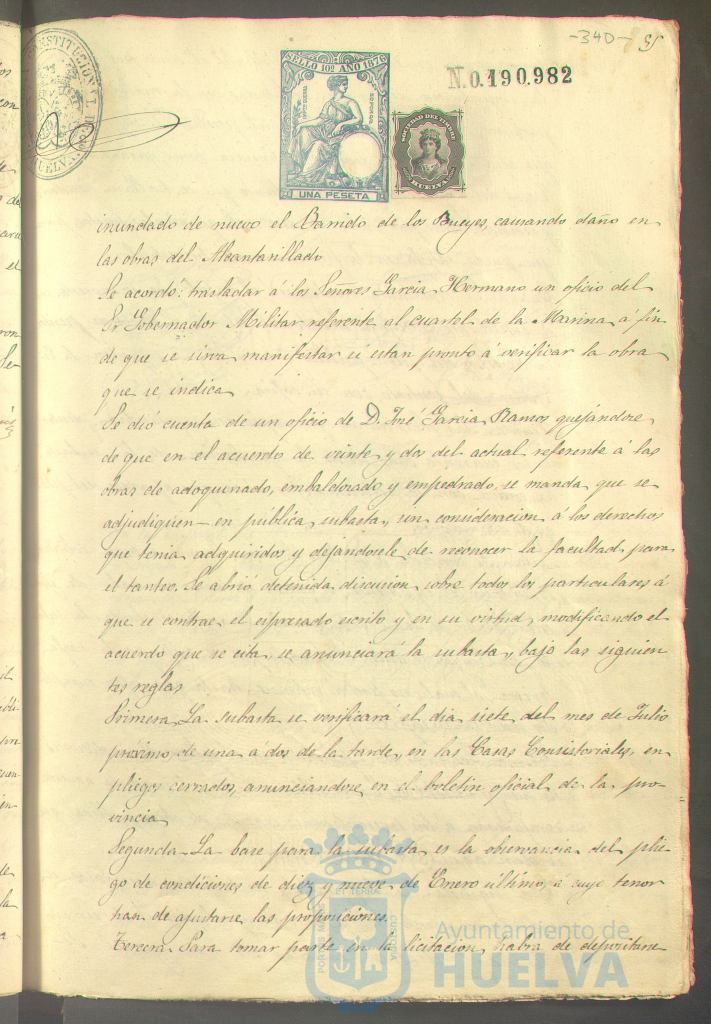 -340-
SELLO 10º AÑO 1876
UNA PESETA
N.0.190.982
SOCIEDAD DEL TIMBRE
HUELVA
inundado de nuevo el Barrido de los Bueyes, causando daño en
las obras del Alcantarillado
Se acordó: trasladar á los Señores Garcia Hermano un oficio del
Sr Gobernador Militar referente al cuartel de la Marina á fin
de que se sirva manifestar si estan pronto á verificar la obra
que se indica
Se dió cuenta de un oficio de D. José Garcia Ramos quejándose
de que en el acuerdo de veinte y dos del actual referente á las
obras de adoquinado, embaldosado y empedrado, se manda que se
adjudiquen en pública subasta, sin consideracion á los derechos
que tenia adquiridos y dejándosele de reconocer la facultad para
el tanteo. Se abrió detenida discusion sobre todos los particulares á
que se contrae el espresado escrito y en su virtud, modificando el
acuerdo que se cita, se anunciará la subasta, bajo las siguien
tes reglas
Primera La subasta se verificará el dia siete del mes de Julio
próximo de una á dos de la tarde, en las Casas Consistoriales, en
pliegos cerrados, anunciándose en el boletin oficial de la pro-
vincia
Segunda La base para la subasta es la observancia del plie
go de condiciones de diez y nueve de Enero último, á cuyo tenor
han de ajustarse las proposiciones.
Tercera Para tomar parte en la licitacion, habrá de depositarse
Ayuntamiento de
HUELVA